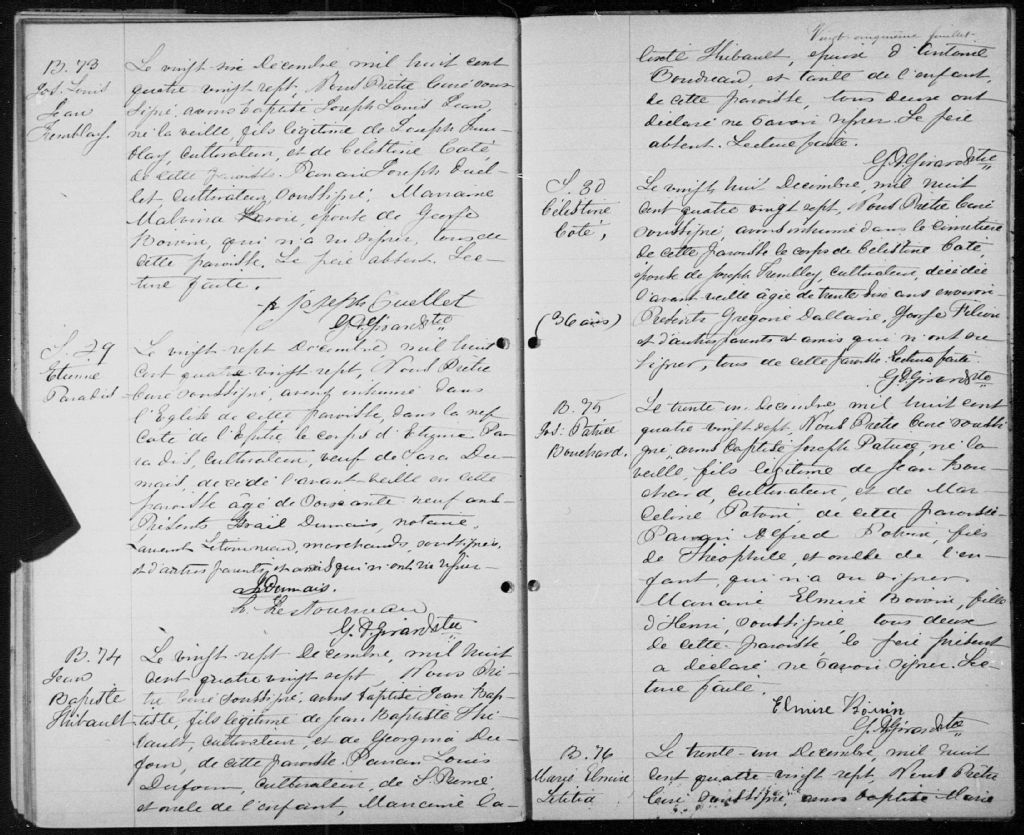 B. 73
Jos. Louis
Jean
Tremblay.
Le vingt-six Decembre mil huit cent
quatre vingt sept, Nous Prêtre Curé sous-
signé, avons baptisé Joseph Louis Jean,
né la veille, fils légitime de Joseph Trem-
blay, cultivateur, et de Célestine Coté,
de cette paroisse. Parrain Joseph Ouel-
let, cultivateur, soussigné, Marraine
Malvina Savoie, épouse de George
Boivin, qui n'a su signer, tous de
cette paroisse. Le père absent. Lec-
ture faite.
Joseph Ouellet
G. A. Girard Ptre
S. 29
Etienne
Paradis
Le vingt-sept Décembre, mil huit
cent quatre vingt sept, Nous Prêtre
Curé soussigné, avons inhumé dans
l'Eglise de cette paroisse, dans la nef
coté de l'Epître le corps d'Etienne Pa-
radis, cultivateur, veuf de Sara Du-
mais, décédé l'avant veille en cette
paroisse âgé de soixante neuf ans.
Présents Israil Dumais, notaire,
Laurent Letourneau, marchands, soussignés,
et d'autres parents et amis qui n'ont su signer
I. Dumais.
L. Letourneau
G. A. Girard Ptre
B. 74
Jean
Baptiste
Thibault
Le vingt sept Décembre, mil huit
cent quatre vingt sept, Nous Prê-
tre Curé soussigné, avons baptisé Jean Bap-
tiste, fils légitime de Jean Baptiste Thi-
bault, cultivateur, et de Georgina Du-
four, de cette paroisse. Parrain Louis
Dufour, cultivateur, de St Prime
et oncle de l'enfant, Marraine
Vingt-cinquième feuillet
Thibault, épouse d'Antoine
Boudreau, et tante de l'enfant,
de cette paroisse, tous deux ont
déclaré ne savoir signer. Le père
absent. Lecture faite.
G. A. Girard Ptre
S. 30
Célestine
Coté,
(36 ans)
Le vingt huit Decembre, mil huit
cent quatre vingt sept, Nous Prêtre Curé
soussigné avons inhumé dans le cimetière
de cette paroisse le corps de Célestine Coté,
épouse de Joseph Tremblay, cultivateur, décédée
l'avant-veille âgée de trente six ans environ
Présents Gregoire Dallaire, George Filion
et d'autres parents et amis qui n'ont su
signer, tous de cette paroisse. Lecture faite.
G. A. Girard Ptre
B. 75
Jos. Patrice
Bouchard.
Le trente un Decembre mil huit cent
quatre vingt sept Nous Prêtre Curé soussi-
gné, avons baptisé Joseph Patrice, né la
veille, fils légitime de Jean Bou-
chard, cultivateur, et de Mar-
celine Potvin, de cette paroisse.
Parrain Alfred Potvin, fils
de Théophile, et oncle de l'en-
fant, qui n'a su signer,
Marraine Elmire Boivin, fille
d'Henri, soussignée, tous deux
de cette paroisse, le père présent
a déclaré ne savoir signer. Lec-
ture faite.
Elmire Boivin
G. A. Girard Ptre
B. 76
Marie Elmire
Letitia
Le trente-un Decembre, mil huit
cent quatre-vingt sept, Nous Prêtre
Curé soussigné, avons baptisé Marie